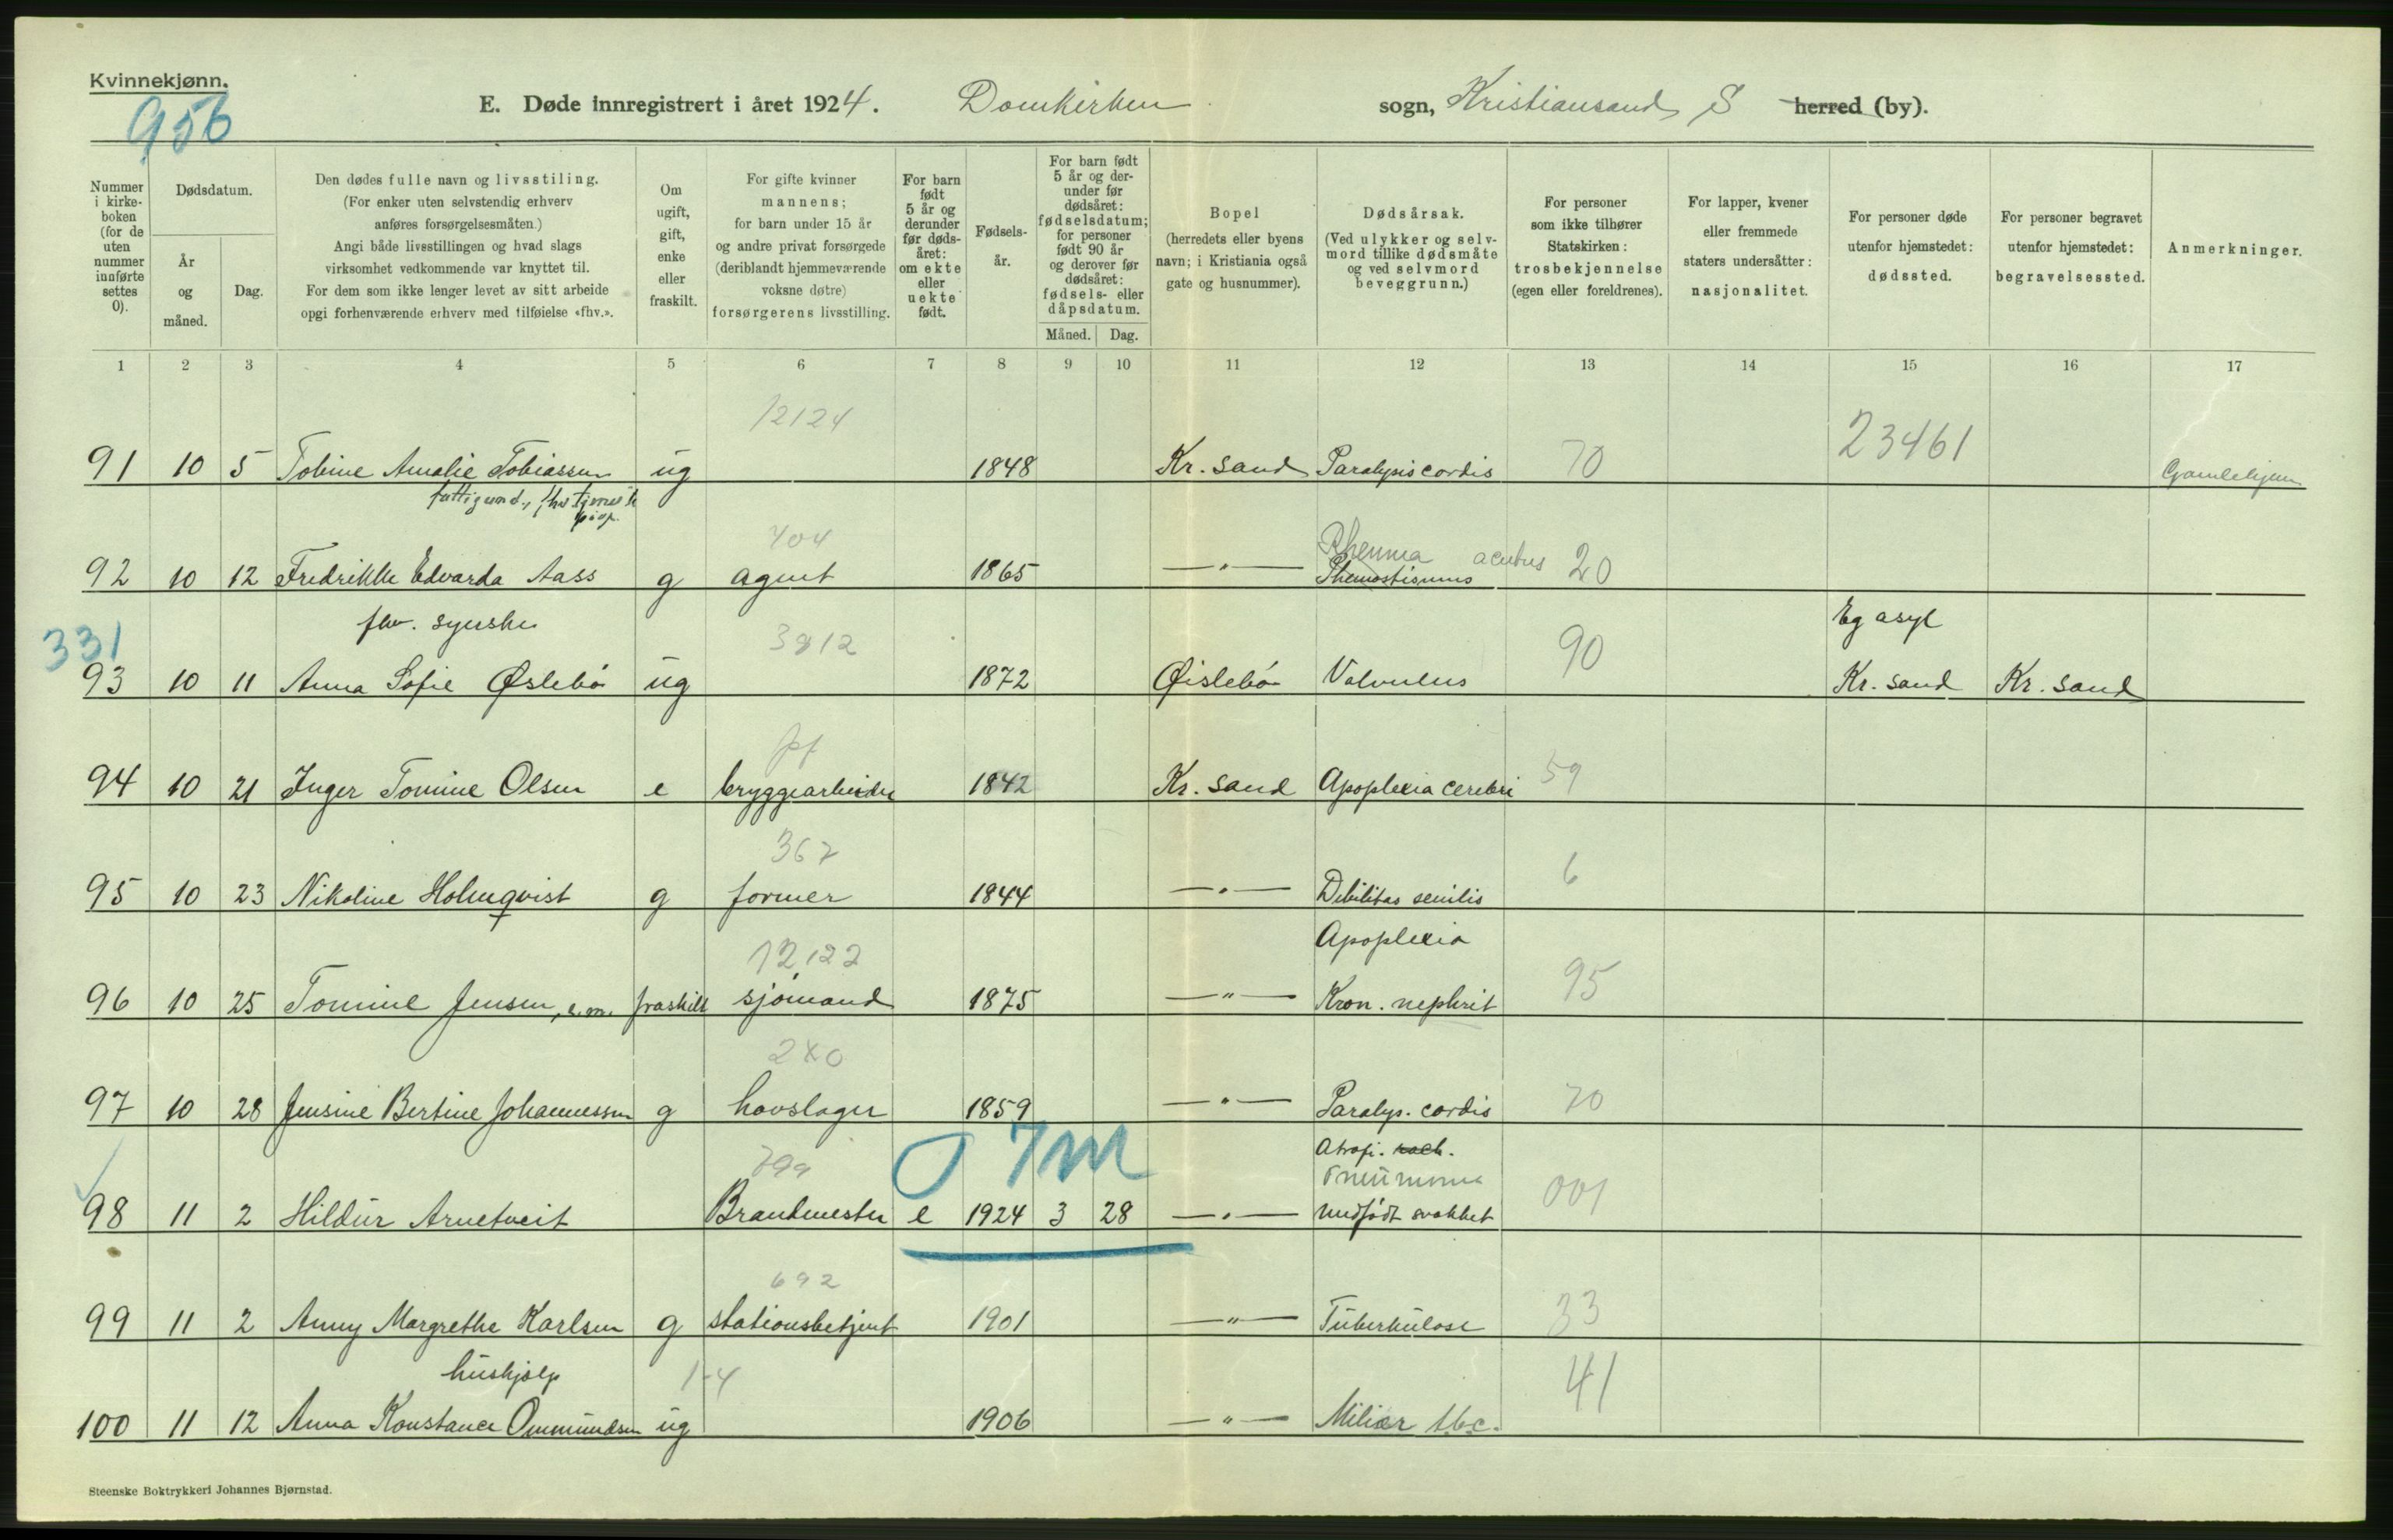 Kvinnekjønn.
956
E. Døde innregistrert i året 1924. Domkirken sogn, Kristiansand S herred (by).
Nummer i kirkeboken (for de uten nummer innførte settes 0).
Dødsdatum.
År og måned.
Dag.
Den dødes fulle navn og livsstilling.
(For enker uten selvstendig erhverv anføres forsørgelsesmåten.)
Angi både livsstillingen og hvad slags virksomhet vedkommende var knyttet til.
For dem som ikke lenger levet av sitt arbeide opgi forhenværende erhverv med tilføielse «fhv.».
Om ugift, gift, enke eller fraskilt.
For gifte kvinner mannens; for barn under 15 år og andre privat forsørgede (deriblandt hjemmeværende voksne døtre) forsørgerens livsstilling.
For barn født 5 år og derunder før dødsåret: om ekte eller uekte født.
Fødselsår.
For barn født 5 år og derunder før dødsåret: fødselsdatum; for personer født 90 år og derover før dødsåret: fødsels- eller dåpsdatum.
Måned. Dag.
Bopel (herredets eller byens navn; i Kristiania også gate og husnummer).
Dødsårsak.
(Ved ulykker og selvmord tillike dødsmåte og ved selvmord beveggrunn.)
For personer som ikke tilhører Statskirken: trosbekjennelse (egen eller foreldrenes).
For lapper, kvener eller fremmede staters undersåtter: nasjonalitet.
For personer døde utenfor hjemstedet: dødssted.
For personer begravet utenfor hjemstedet: begravelsessted.
Anmerkninger.
1 2 3 4 5 6 7 8 9 10 11 12 13 14 15 16 17
12124
91 10 5 Tobine Amalie Tobiassen ug 1848 Kr. sand Paralysis cordis 70 23461 Gamlehjem
fattigund.,
404 Rheuma acutus
92 10 12 Fredrikke Edvarda Aass g agent 1865 —〃— Rheumatismus 20
fhv. syerske 3812 Eg asyl
331
93 10 11 Anna Sofie Øslebö ug 1872 Øislebö Volvulus 90 Kr. sand Kr. sand
94 10 21 Inger Tomine Olsen e bryggearbeider 1842 Kr. sand Apoplexia cerebri 59
367
95 10 23 Nikoline Holmqvist g former 1844 —〃— Debilitas senilis 6
12122 Apoplexia
96 10 25 Tomine Jensen, e.m. fraskilt sjömand 1875 —〃— Kron. nephrit 95
240
97 10 28 Jensine Bertine Johannessen g hovslager 1859 —〃— Paralys. cordis 70
7m Atrofi.
98 11 2 Hildur Arnetveit Brandmester e 1924 3 28 —〃— medfödt svakhet 001
692
99 11 2 Anny Margrethe Karlsen g stationsbetjent 1901 —〃— Tuberkulose 33
hushjelp 1-4
100 11 12 Anna Konstance Ommundsen ug 1906 —〃— Miliær tbc. 41
Steenske Boktrykkeri Johannes Bjørnstad.